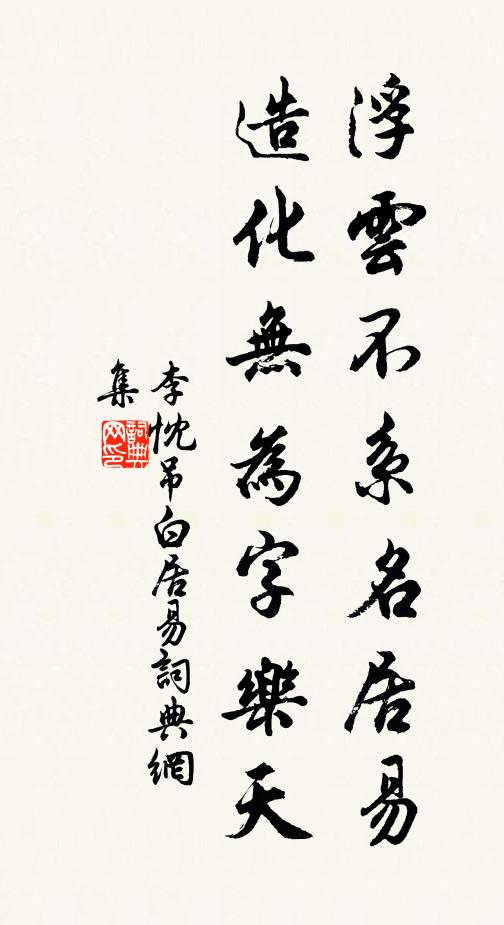 浮雲不系名居易
造化無為字樂天
李忱吊白居易詞典網
集
詞典
网印